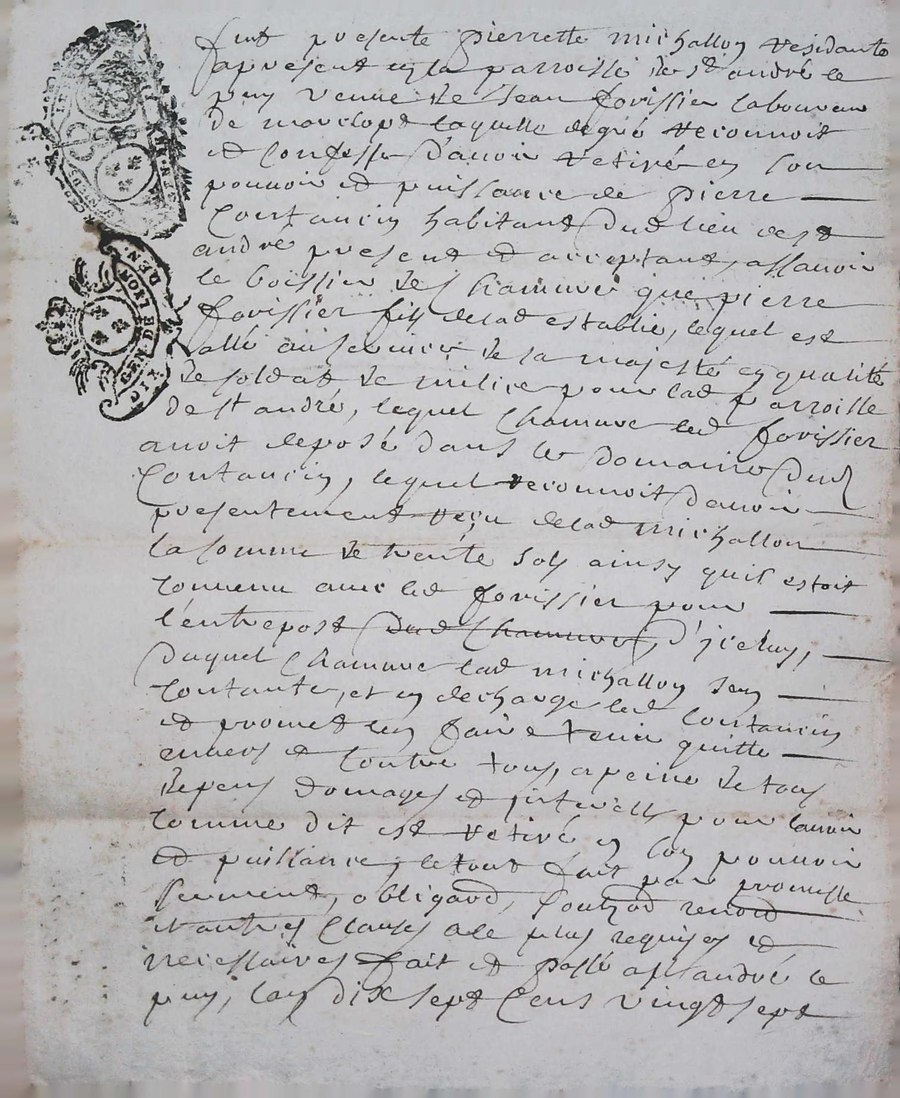 fut presente pierrette michallon residante
apresent en la parroisse de st andré le
puy veuve de Jean forissier laboureur
de marclopt laquelle de gré reconnoit
et confesse d'avoir retiré en son
pouvoir et puissance de pierre
Coutancin habitant dud lieu de st
andré present et acceptant, assavoir
le Chamvre que pierre
forissier fils de lad establie, lequel est
allé au service de sa majesté en qualité
de soldat de milice pour lad parroisse
de st andré, lequel Chamvre led forissier
avoit deposé dans le domaine dud
Coutancin, lequel reconnoit d'avoir
presentement reçu de lad michallon
la somme de trente sols ainsy quil estoit
convenu avec led forissier pour
l'entrepost dud Chamvre, d'jceluy,
duquel Chamvre lad michallon sen
contante, et en decharge led Coutancin
et promet len faire tenir quitte
envers et contre tous, a peine de tous
depens domages et jnterests pour lavoir
comme dit est retiré en son pouvoir
et puissance, le tout fait par promesse
serment, obligaõn, renonõn
et autres clauses a ce plus requises et
necessaires fait et passé a st andré le
puy, lan dix sept cens vingt sept
GEN DE LYON
DIX DEN.